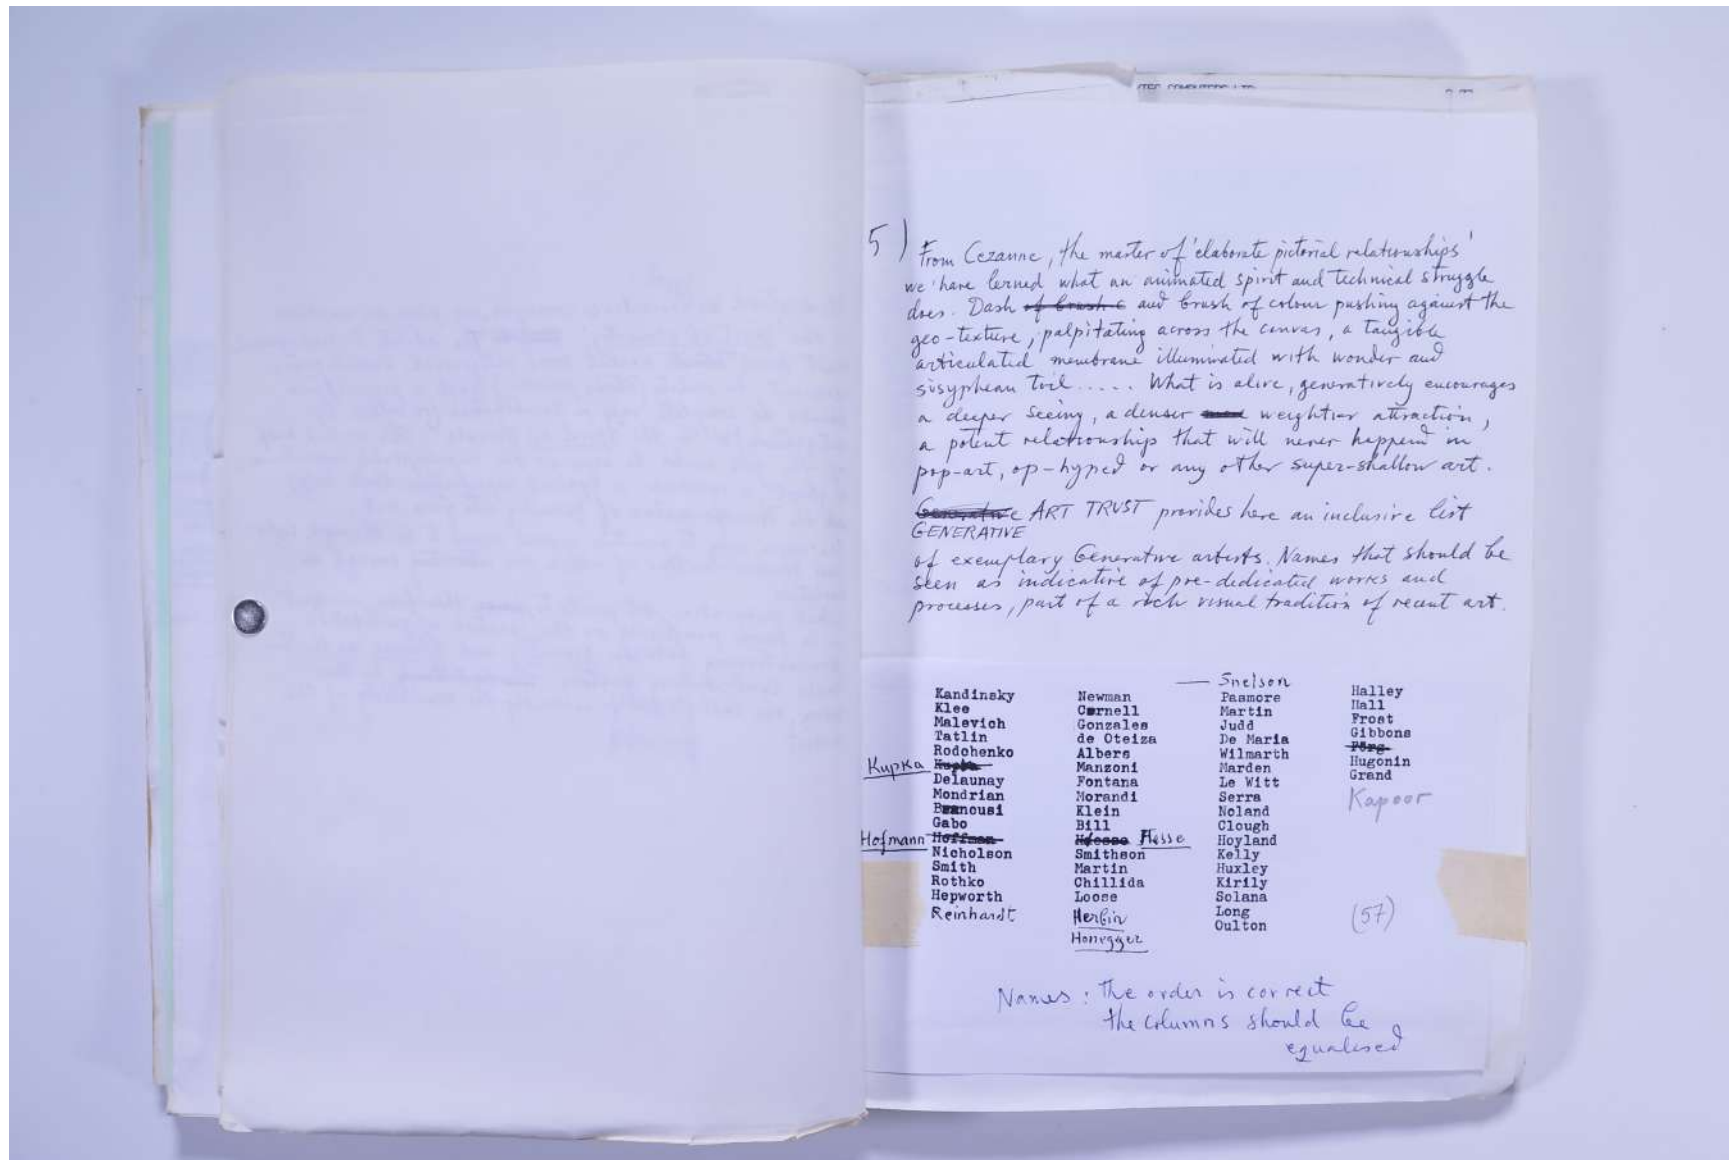 5)
From Cezanne, the master of 'elaborate pictorial relationships'
we have lerned what an animated spirit and technical struggle
does. Dash of brush and brush of colour pushing against the
geo-texture, palpitating across the canvas, a tangible
articulated membrane illuminated with wonder and
sisyphean toil..... What is alive, generatively encourages
a deeper seeing, a denser weightier attraction,
a potent relationships that will never happend in
pop-art, op-hyped or any other super-shallow art.
Generative ART TRUST provides here an inclusive list
GENERATIVE
of exemplary Generative artists. Names that should be
seen as indicative of pre-dedicated works and
processes, part of a rich visual tradition of recent art.
Kandinsky
Klee
Malevich
Tatlin
Rodohenko
Kupka Kupka
Delaunay
Mondrian
Brancusi
Gabo
Hofmann Hoffman
Nicholson
Smith
Rothko
Hepworth
Reinhardt
Newman
Cornell
Gonzales
de Oteiza
Albers
Manzoni
Fontana
Morandi
Klein
Bill
Hesse
Smithson
Martin
Chillida
Loose
Herbin
Honegger
Snelson
Pasmore
Martin
Judd
De Maria
Wilmarth
Marden
Le Witt
Serra
Noland
Clough
Hoyland
Kelly
Huxley
Kirily
Solana
Long
Oulton
Halley
Hall
Frost
Gibbons
Förg
Hugonin
Grand
Kapoor
(57)
Names : the order is correct
the columns should be
equalised